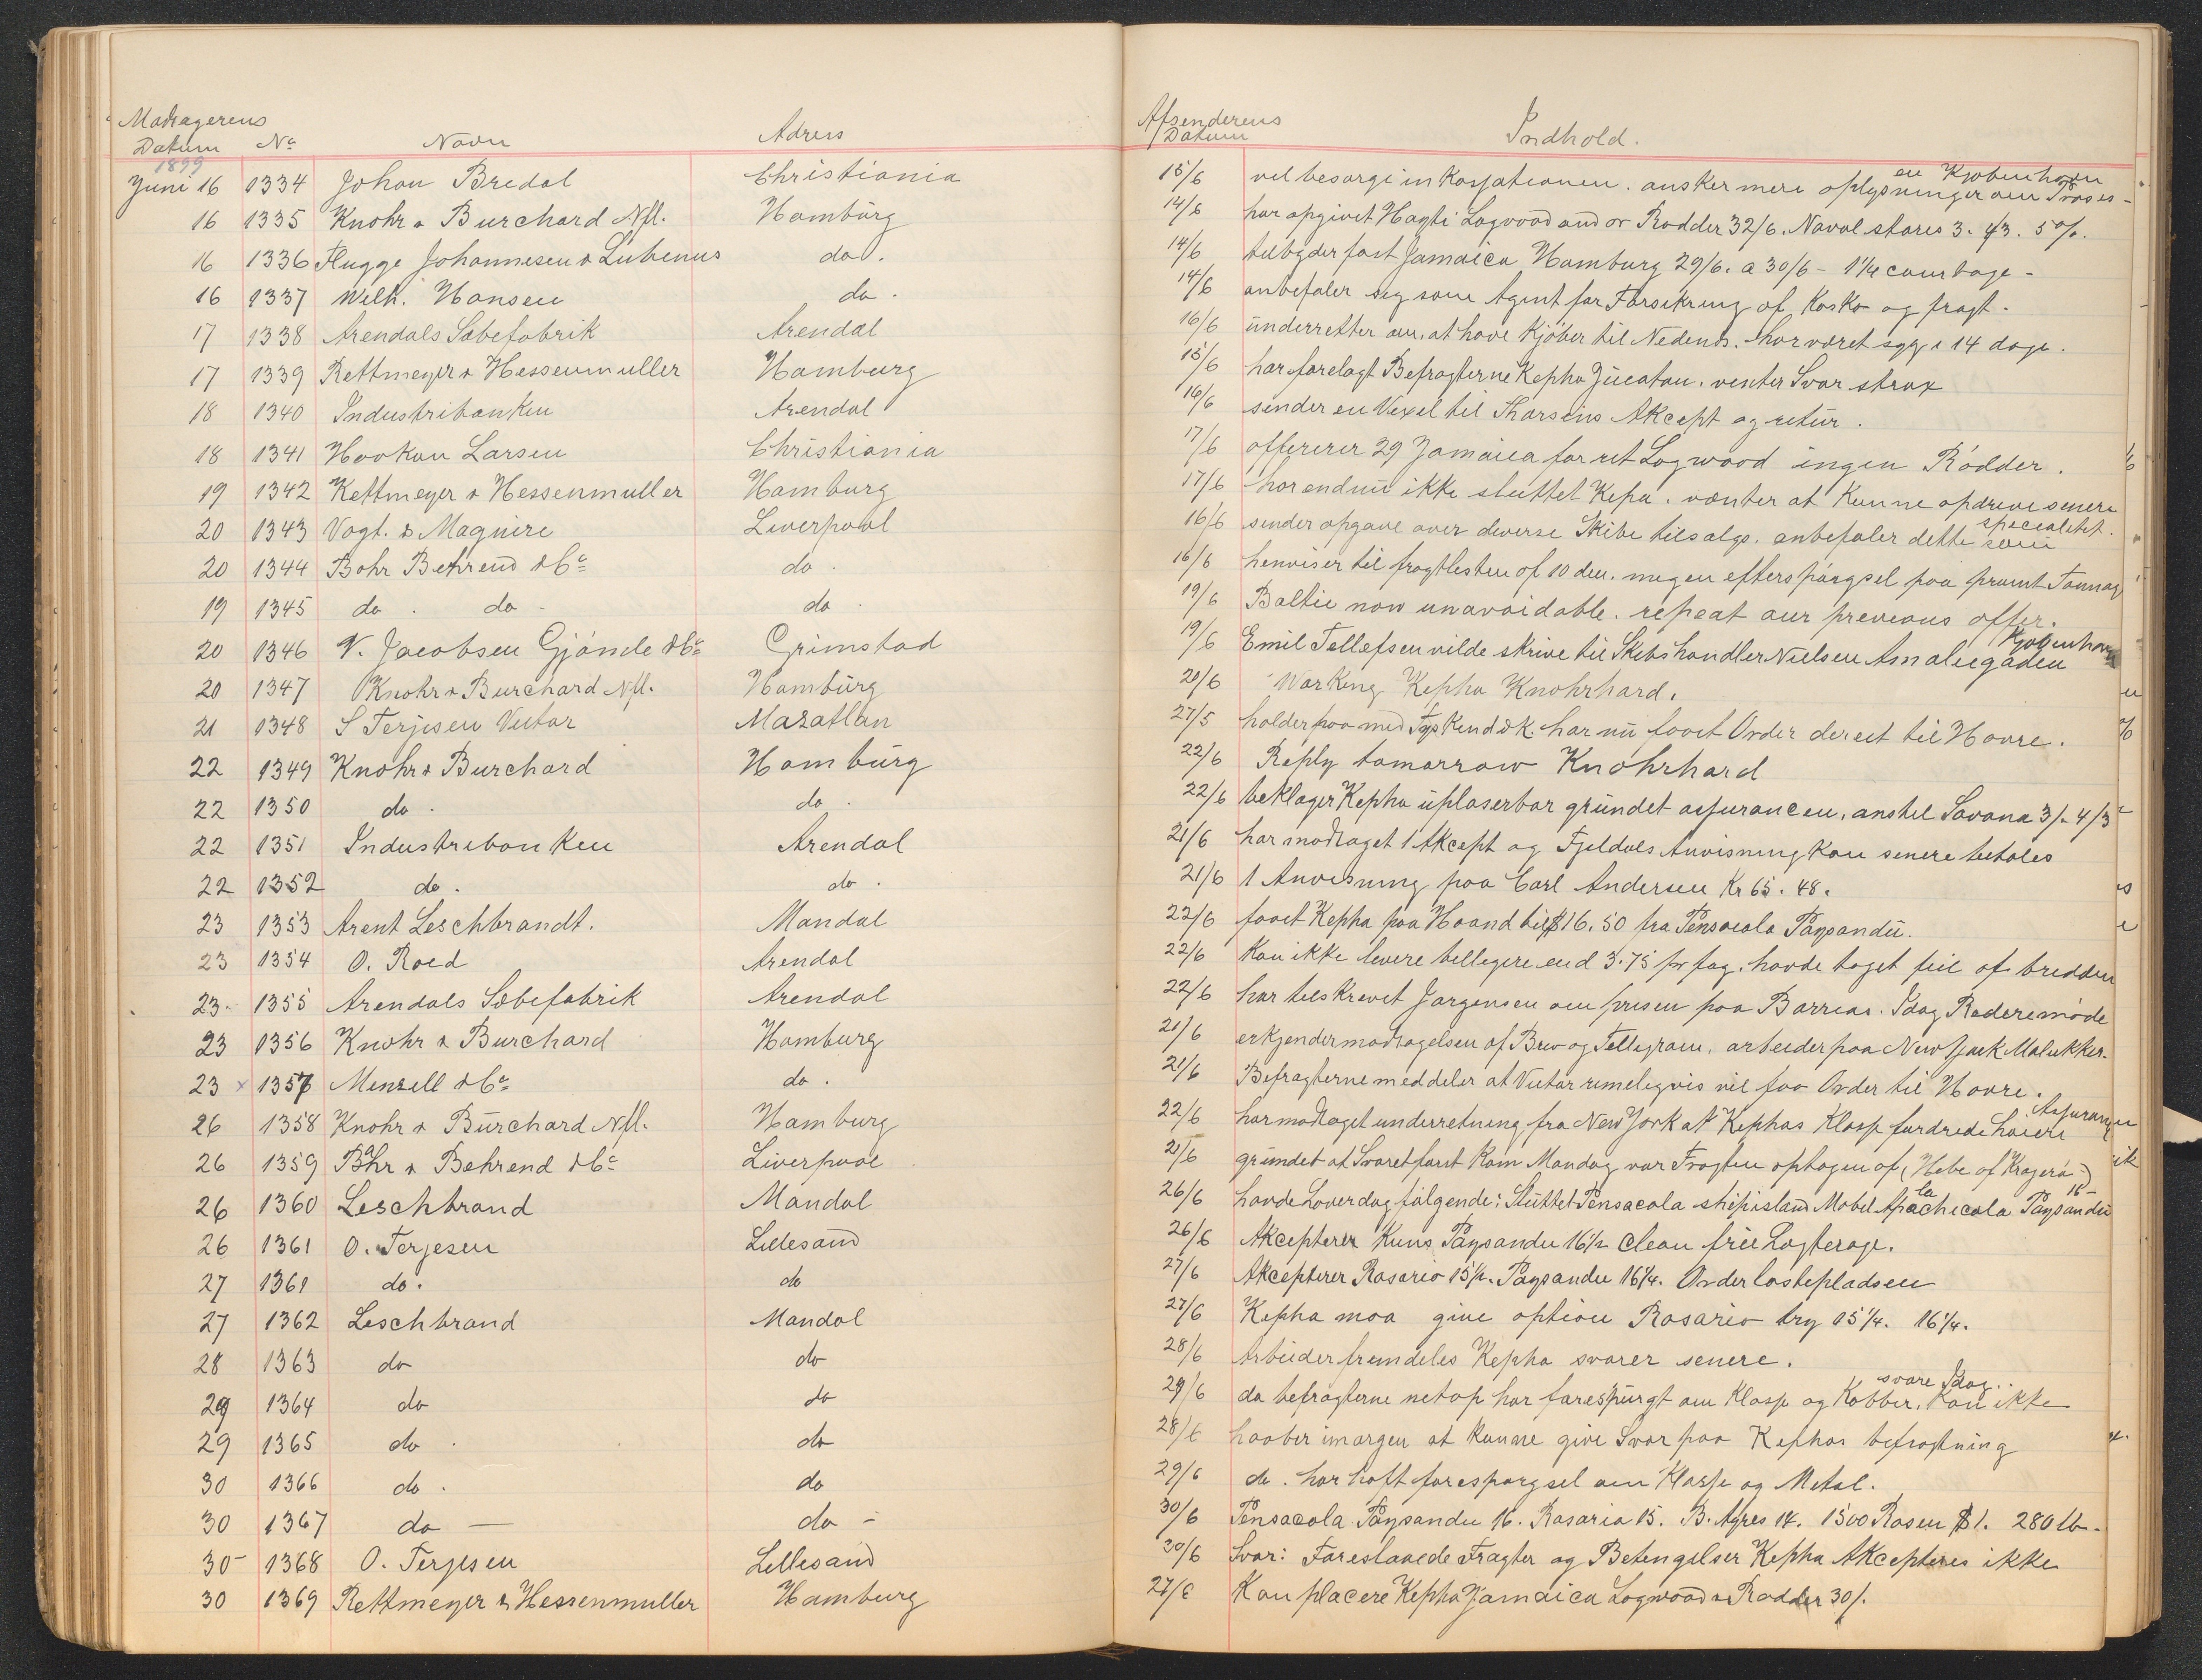 Modtagerens Datum No Navn Adress Afsenderens Datum Indhold.
1899
Juni 16 1334 Johan Bredal Christiania 15/6 vil besørge inkassationen. ønsker mere oplysninger om Proces- en Kjøbenhavn
16 1335 Knohr & Burchard Nfl. Hamburg 14/6 har opgivet Hayti Logwood and or Rødder 32/6. Naval stores 3. 4/3. 5%.
16 1336 Flugge Johannesen & Lubenus do. 14/6 tilbyder fast Jamaica Hamburg 29/6. a 30/6 - 1 1/4 courtage -
16 1337 Wilh. Hansen do. 14/6 anbefaler sig som Agent for Forsikring af Kasko og fragt.
17 1338 Arendals Sæbefabrik Arendal 16/6 underretter om, at have Kjøber til Nedenes. har været syg i 14 dage.
17 1339 Rettmeyer & Hessenmuller Hamburg 15/6 har forelagt Befragterne Kepha Yucatan. venter Svar strax
18 1340 Industribanken Arendal 16/6 sender en Vexel til Thorsens Akcept og retur.
18 1341 Haakon Larsen Christiania 17/6 offererer 29 Jamaica for ret Logwood ingen Rødder.
19 1342 Rettmeyer & Hessenmuller Hamburg 17/6 har endnu ikke sluttet Kepa. vænter at kunne opdrive senere
20 1343 Vogt. & Maguire Liverpool 16/6 sender opgave over diverse Skibe tilsalgs. anbefaler dette som specialitet.
20 1344 Bahr Behrend & Co do. 16/6 henviser til fragtlisten af 10 den. megen efterspørgsel paa promt Tonnage
19 1345 do. do. do. 19/6 Baltic now unavoidable. repeat our previous offer.
20 1346 V. Jacobsen Gjønde & Co Grimstad 19/6 Emil Tellefsen vilde skrive til Skibshandler Nielsen Amaliegaden Kjøbenhavn
20 1347 Knohr & Burchard Nfl. Hamburg 20/6 Working Kepha Knohrhard.
21 1348 S Terjesen Victor Mazatlan 27/5 holder paa med Tyskend & K. har nu faaet Order direct til Havre.
22 1349 Knohr & Burchard Hamburg 22/6 Reply tomorrow Knohrhard
22 1350 do. do. 22/6 beklager Kepha uplaserbar grundet assurancen, anstil Savana 3/- 4/3
22 1351 Industribanken Arendal 21/6 har modtaget 1 Akcept og Fjeldals Anvisning Kan senere betales
22 1352 do. do. 21/6 1 Anvisning paa Carl Andersen Kr 65. 48.
23 1353 Arent Leschbrandt. Mandal 22/6 faaet Kepha paa Haand til $16.50 fra Pensacola Paysandu.
23 1354 O. Roed Arendal 22/6 Kan ikke levere billigere end 3.75 pr fag. havde taget feil af bredden
23. 1355 Arendals Sæbefabrik Arendal 22/6 har tilskrevet Jørgensen om prisen paa Barriar. Idag Rederemøde
23 1356 Knohr & Burchard Hamburg 21/6 erkjender modtagelsen af Brev og Tellegram, arbeider paa New York Malukker.
23 x 1357 Menzell & Co do. 21/6 Befragterne meddeler at Victor rimeligvis vil faa Order til Havre.
26 1358 Knohr & Burchard Nfl. Hamburg 22/6 har modtaget underretning fra New York at Kephas Klasse fordrede høiere Assurance
26 1359 Bahr & Behrend & Co Liverpool 21/6 grundet at Svaret først kom Mandag var Fragten optagen af (Hebe af Kragerø)
26 1360 Leschbrand Mandal 26/6 havde Løverdag følgende: Sluttet Pensacola shipisland Mobel Apalachicola Paysandu 16-
26 1361 O. Terjesen Lillesand 26/6 Akcepterer Kuns Paysandu 16 1/2 clean free Lagterage.
27 1361 do. do 27/6 Akcepterer Rosario 15 1/2. Paysandu 16 1/4. Order lastepladsen
27 1362 Leschbrand Mandal 27/6 Kepha maa give option Rosario try 15 1/4. 16 1/4.
28 1363 do do 28/6 Arbeider fremdeles Kepha svarer senere.
29 1364 do do 29/6 da befragterne netop har forespurgt om Klasse og Kobber, Kan ikke svare Idag..
29 1365 do. do 28/6 haaber imorgen at kunne give Svar paa Kephas befragtning
30 1366 do. do 29/6 do. har haft forespørgsel om Klasse og Metal.
30 1367 do — do - 30/6 Pensacola Paysandu 16. Rosario 15. B. Ayres 14. 1500 Rosen $1. 280 lb-
30- 1368 O. Terjesen Lillesand 20/6 Svar: Foreslaaede Fragter og Betingelser Kepha Akcepteres ikke
30 1369 Rettmeyer & Hessenmuller Hamburg 27/6 Kan placere Kepha Jamaica Logwood & Rødder 30/.